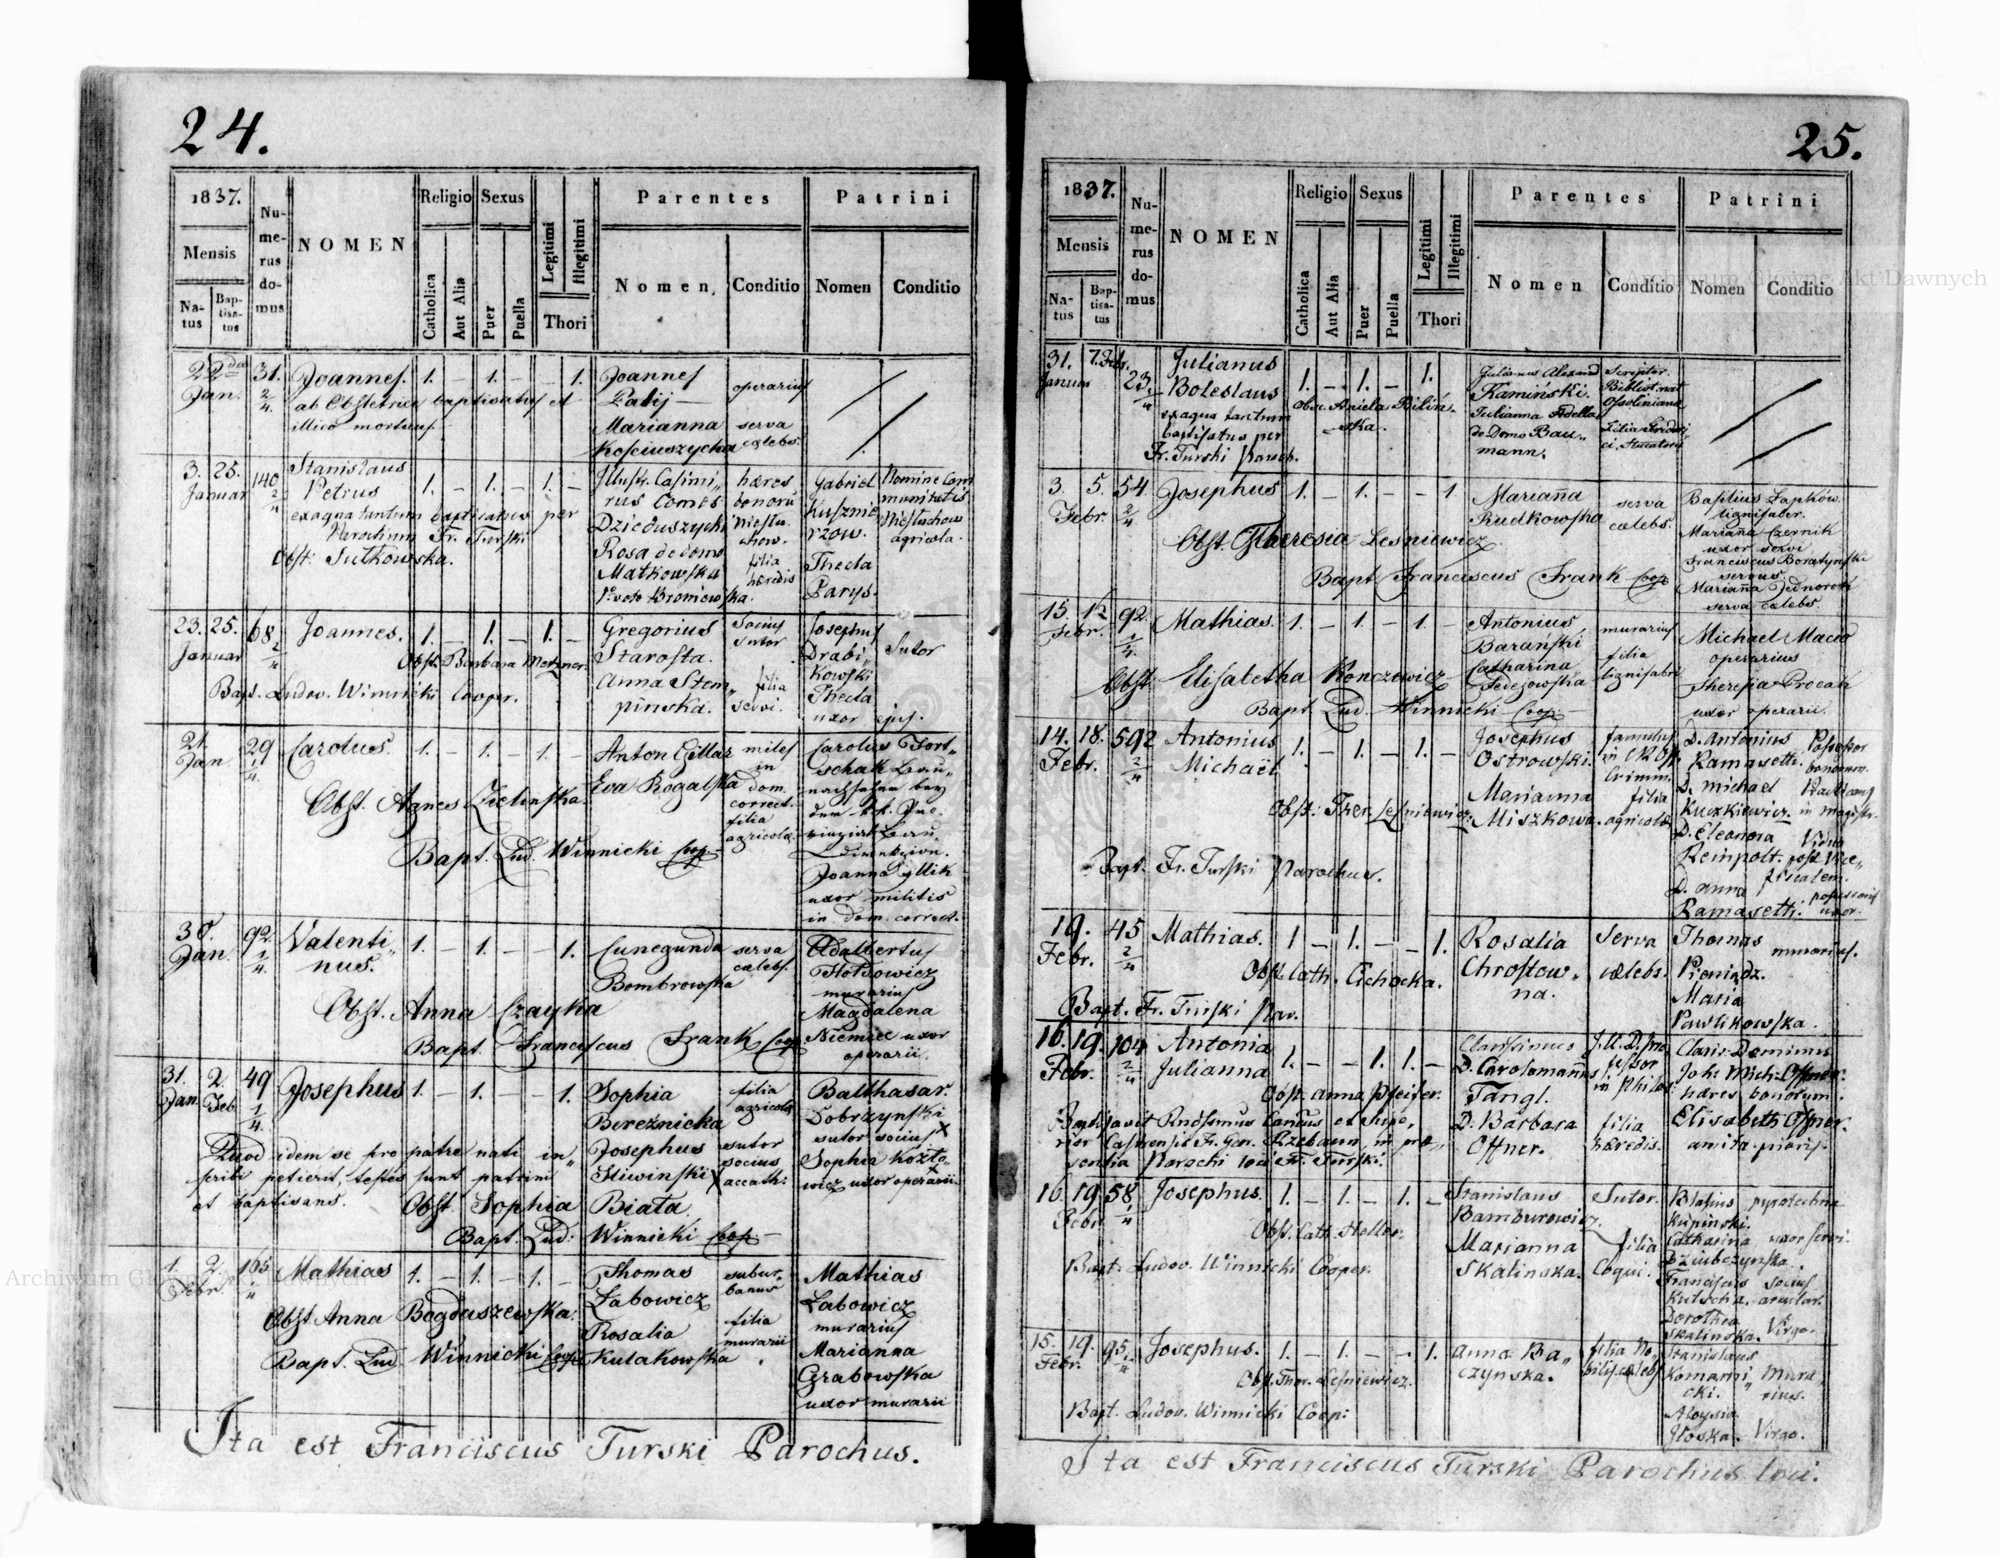 24.
1837.
Mensis
Na-
tus
Bap-
tisa-
tus
Nu-
me-
rus
do-
mus
NOMEN
Religio
Catholica
Aut Alia
Sexus
Puer
Puella
Legitimi
Illegitimi
Thori
Parentes
Nomen
Conditio
Patrini
Nomen
Conditio
22da
Jan.
31.
2/4.
Joannes.
ab Obstetrice baptisatus et
illico mortuus
1. – 1. – – 1.
Joannes
operarius
Marianna
Kościuszycha
serva
cælebs
3. 25.
Januar
140
2/4
Stanislaus
Petrus
ex aqua tantum baptisatus per
Parochum Fr. Turski
Obst: Sutkowska.
1. – 1. – 1. –
Illustr. Casimi„
rus Comes
Dzieduszycki
Rosa de domo
Matkowska
1o voto Broniewska.
hæres
bonorū
Niestu.
chow.
filia
hæredis
Gabriel
Kusznie
rzow.
Thecla
Parys.
Nomine Com
munitatis
Niestuchow
agricola.
23. 25.
Januar
68
2/4
Joannes.
1. – 1. – 1. –
Obst. Barbara Metzner.
Bapt. Ludov. Winnicki Cooper.
Gregorius
Starosta.
Anna Stem„
pinska.
Socius
Sutor
filia
servi.
Josephus
Drabi„
kowski
Thecla
uxor ejus.
Sutor
21.
Jan
29
1/4.
Carolus.
1. – 1. – 1. –
Obst. Agnes Zielinska
Bapt. Lud. Winnicki Coop
Anton Gillar
Eva Rogalska
miles
in
dom.
correct.
filia
agricolæ
Carolus Fort„
schak
Joanna
uxor militis
in dom. correct.
30.
Jan
92.
1/4.
Valenti„
nus.
1. – 1. – – 1.
Obst. Anna Czayka
Bapt. Franciscus Frank Coop
Cunegunda
Bombrowska
serva
cælebs.
Adalbertus
Hołdowicz
murarius
Magdalena
Niemiec uxor
operarii.
31. 2.
Jan. Feb
49
1/4.
Josephus
1. – 1. – – 1.
Quod idem se pro patre nati in„
scribi petierit, testes sunt patrini
et baptisans.
Obst. Sophia Biata
Bapt. Lud: Winnicki Coop
Sophia
Bereznicka
Josephus
Sliwinski X
filia
agricolæ
sutor
socius
accath:
Balthasar.
Dobrzynski
sutor socius X
Sophia Kozte„
wicz uxor operarii
1. 2.
Febr.
165
1/4
Mathias
1. – 1. – 1. –
Obst Anna Bogduszewska.
Bapt. Lud. Winnicki Coop
Thomas
Labowicz
Rosalia
Kulakowska
subur„
banus
filia
murarii
Mathias
Labowicz
murarius
Marianna
Grabowska
uxor murarii
Ita est Franciscus Turski Parochus.
25.
1837.
Mensis
Na-
tus
Bap-
tisa-
tus
Nu-
me-
rus
do-
mus
NOMEN
Religio
Catholica
Aut Alia
Sexus
Puer
Puella
Legitimi
Illegitimi
Thori
Parentes
Nomen
Conditio
Patrini
Nomen
Conditio
31. 7. Feb.
Januar
23.
/4
Julianus
Boleslaus
ex aqua tantum
baptisatus per
Fr. Turski Paroch.
1. – 1. – 1.
Obst. Aniela Bilin„
ska.
Julianus Alexand
Kamiński.
Julianna Adella
de Domo Bau„
mann.
Scriptor.
Bibliot. nat
Ossoliniana
filia
3. 5.
Febr.
54.
2/4
Josephus
1. – 1. – – 1
Obst. Theresia Lesniewicz.
Bapt Franciscus Frank Coop
Mariaña
Rudkowska
serva
cælebs.
Baptius Łapkow.
lignifaber.
Mariaña Czernik
uxor servi
Franciscus Boratynski
servus.
Mariaña Jednoroch
serva cælebs.
15. 12
Febr.
92.
1/4.
Mathias.
1. – 1. – 1. –
Obst Elisabetha Konczewicz
Bapt Lud. Winnicki Coop.
Antonius
Barański
Catharina
Fedezowska
murarius
filia
lignifabri
Michael Macio
operarius
Theresia Procak
uxor operarii.
14. 18.
Febr.
592
2/4
Antonius
Michaël
1. – 1. – 1. –
Obst. Ther. Lesniewicz.
Bapt. Fr. Turski Parochus.
Josephus
Ostrowski.
Marianna
Miszkowa.
famulus
in C.R. Off.
Crimin.
filia
agricolæ
D. Antonius
Ramasetti.
D. Michael
Kuczkiewicz
D. Eleonora
Reinpolt.
D. Anna
Ramasetti.
Possessor
bonorum.
Practicans
in magistr.
Vidua
post Vice„
fiscalem.
possessoris
uxor.
19.
Febr.
45
2/4
Mathias.
1 – 1. – – 1.
Obst. Cath. Cichocka.
Bapt. Fr. Turski Par.
Rosalia
Chrostow„
na.
Serva
cælebs.
Thomas
Pieniądz.
Maria
Pawlikowska.
murarius.
16. 19.
Febr.
104
2/4
Antonia
Julianna
1. – – 1. 1. –
Obst. Anna Pfeifer.
Baptisavit Rndssimus Canōus et Supe„
rior Castrensis Fr. Ger. Rzebaun, in præ„
sentia Parochi loci Fr. Turski.
Clarissimus
D. Carolomañus
Tangl.
D. Barbara
Offner.
J.U.D. Pro
fessor
in Philos.
filia
hæredis.
Claris. Dominus
Joh: Mich: Offner.
hæres bonorum.
Elisabeth Offner.
amita prioris.
16. 19
Febr.
58
1/4
Josephus.
1. – 1. – 1. –
Obst. Cath. Heller.
Bapt. Ludov. Winnicki Cooper.
Stanislaus
Bamburowicz.
Marianna
Skalinska.
Sutor.
filia
Coqui.
Blasius
Kupinski.
Catharina
Dziubczynska.
Franciscus
Kutscha.
Dorothea
Skalinska.
pyrotechna
uxor servi.
socius
Virgo.
15. 19.
Febr.
95.
1/4
Josephus.
1. – 1. – – 1.
Obst. Ther. Lesniewicz.
Bapt. Ludov. Winnicki Coop:
Anna Ba„
czynska.
filia No„
bilis. cælebs
Stanislaus
Komarni„
cki.
Aloysia
Iłoska.
Mura„
rius.
Virgo.
Ita est Franciscus Turski Parochus loci.
Archiwum Główne Akt Dawnych
Archiwum Główne Akt Dawnych